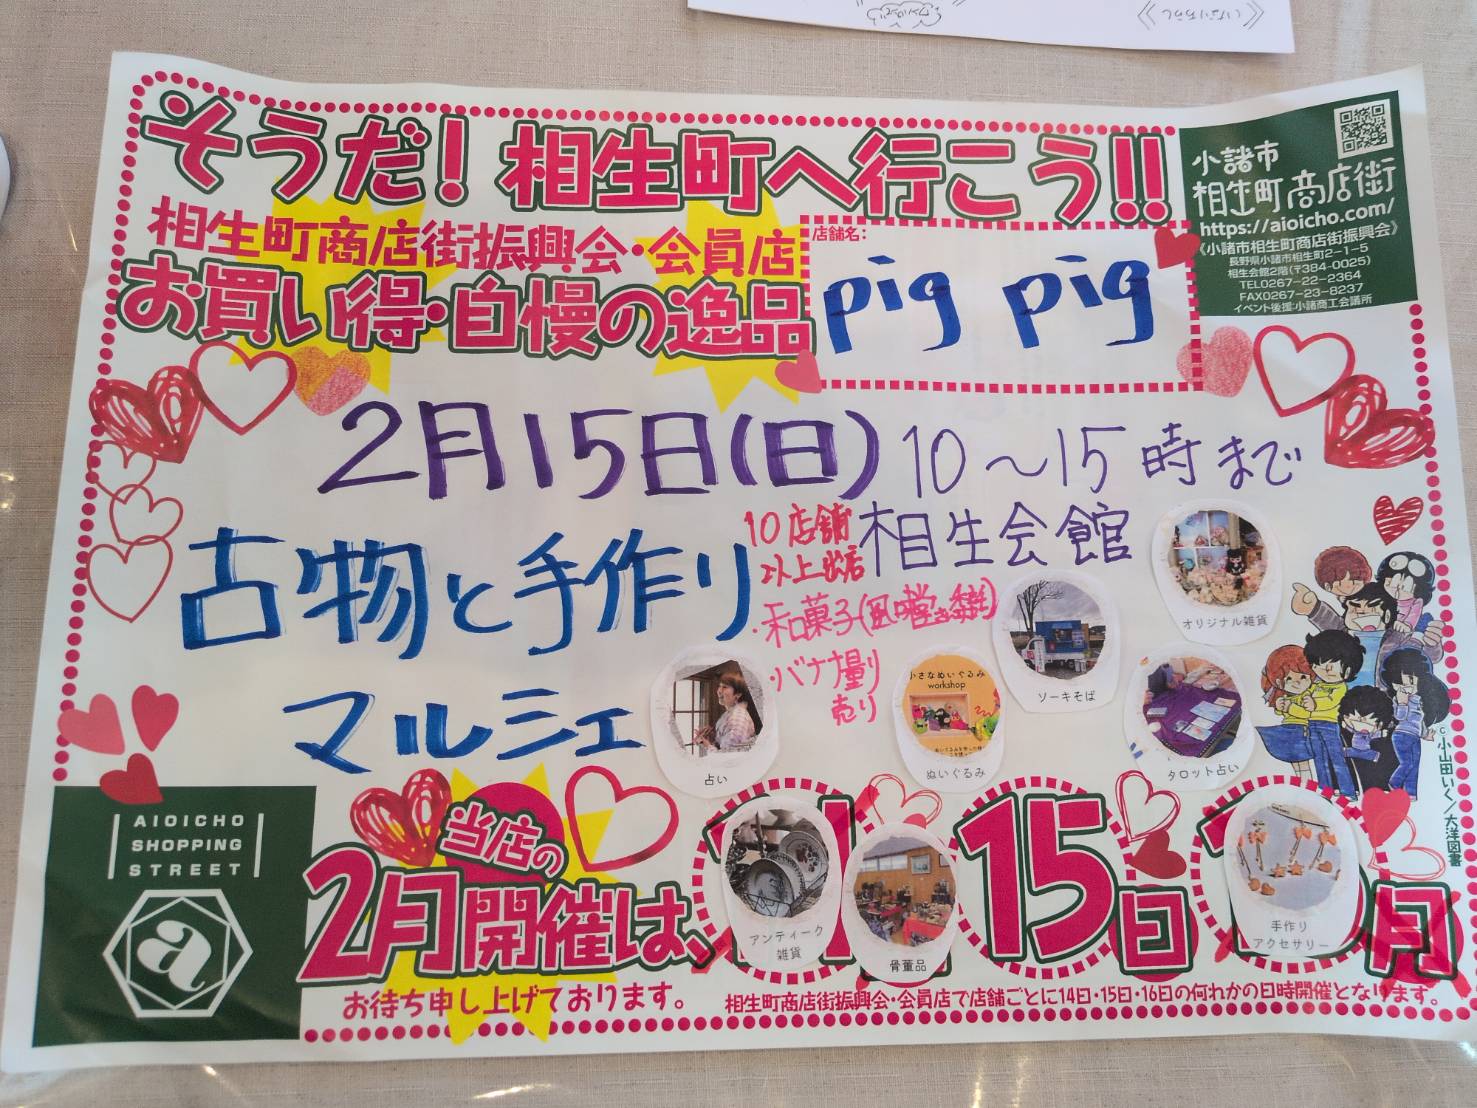 そうだ!相生町へ行こう!!
相生町商店街振興会・会員店
お買い得・自慢の逸品
店舗名:
pig pig
小諸市
相生町商店街
https://aioicho.com/
《小諸市相生町商店街振興会》
長野県小諸市相生町2-1-5
相生会館2階(〒384-0025)
TEL0267-22-2364
FAX0267-23-8237
イベント後援:小諸商工会議所
2月15日(日) 10〜15時まで
古物と手作り
マルシェ
10店舗
以上出店
相生会館
・和菓子
・バナナ量り
売り
オリジナル雑貨
ソーキそば
小さなぬいぐるみ
workshop
ぬいぐるみ
タロット占い
占い
アンティーク
雑貨
骨董品
手作り
アクセサリー
©小山田いく/大洋図書
AIOICHO
SHOPPING
STREET
a
当店の
2月開催は、
15日
月
お待ち申し上げております。
相生町商店街振興会・会員店で店舗ごとに14日・15日・16日の何れかの日時開催となります。